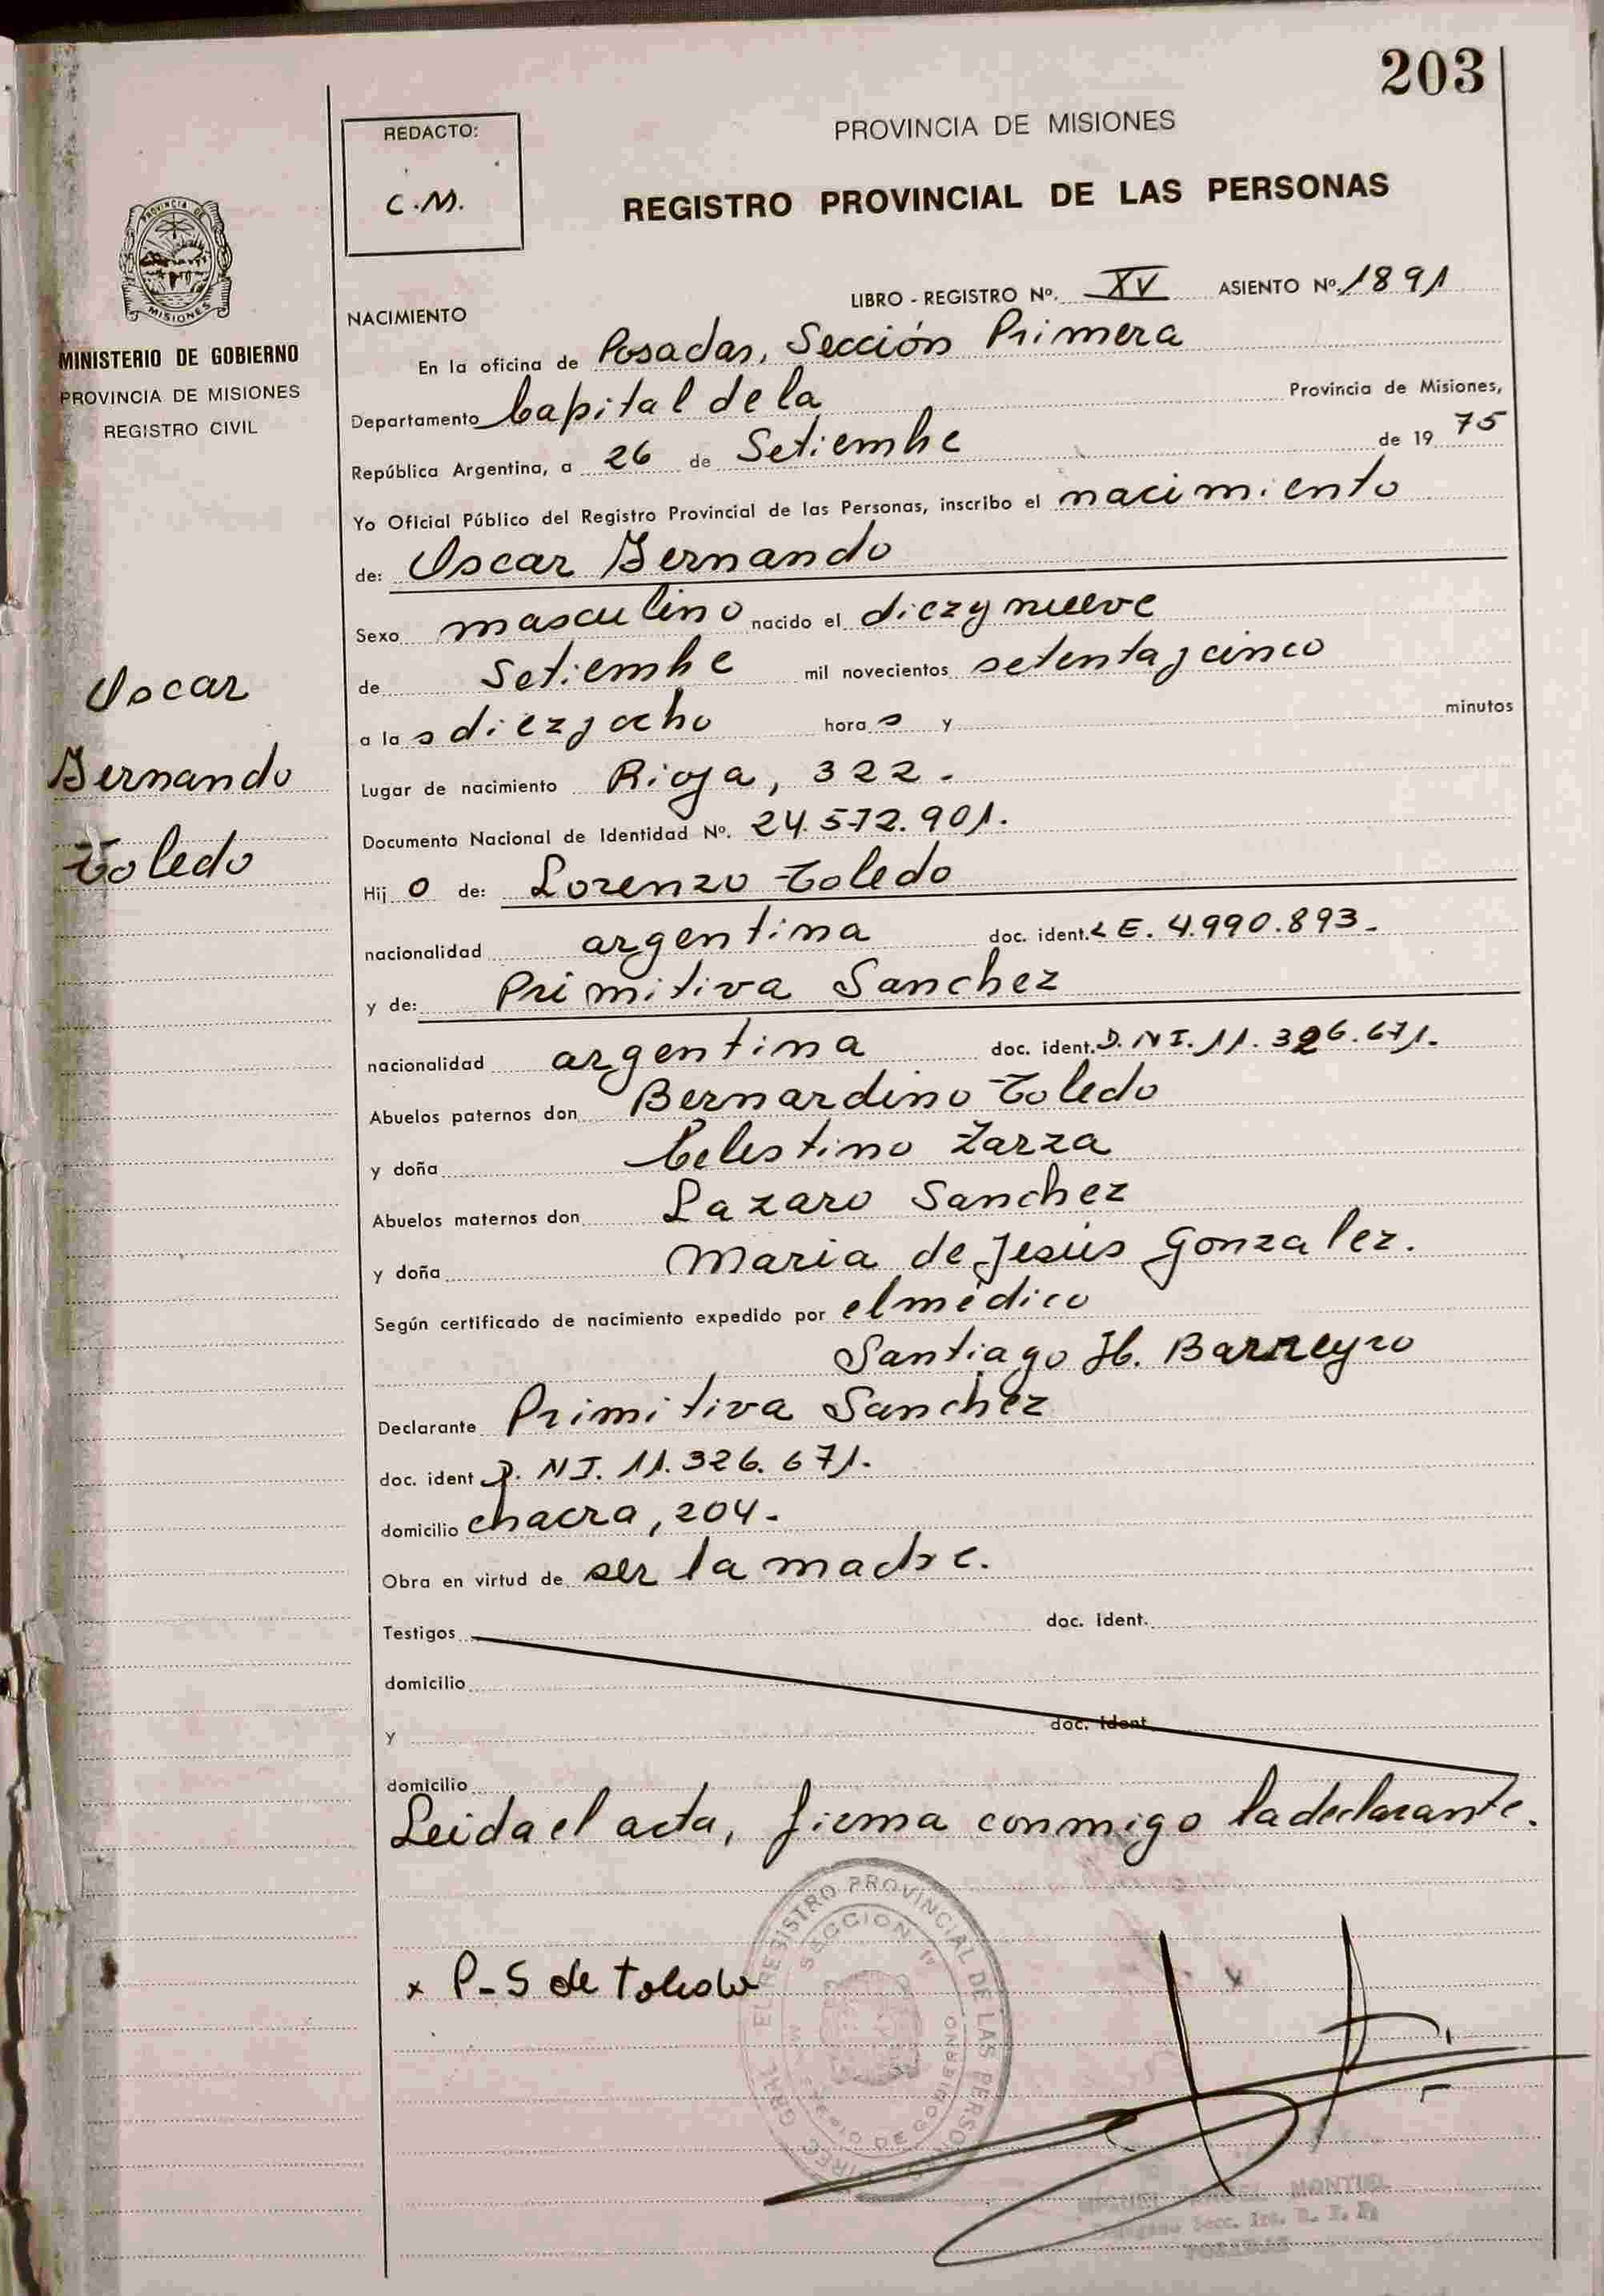 203
REDACTO:
C.M.
PROVINCIA DE MISIONES
REGISTRO PROVINCIAL DE LAS PERSONAS
MISIONES
MINISTERIO DE GOBIERNO
PROVINCIA DE MISIONES
REGISTRO CIVIL
LIBRO - REGISTRO Nº. XV ASIENTO Nº. 1891
NACIMIENTO
En la oficina de Posadas, Sección Primera
Departamento Capital de la Provincia de Misiones,
República Argentina, a 26 de Setiembre de 19 75
Yo Oficial Público del Registro Provincial de las Personas, inscribo el nacimiento
de: Oscar Fernando
Sexo masculino nacido el diezynueve
de Setiembre mil novecientos setentaycinco
a la s diezyocho hora s y minutos
Lugar de nacimiento Rioja, 322.
Documento Nacional de Identidad Nº. 24.572.901.
Hij o de: Lorenzo Toledo
nacionalidad argentina doc. ident. L E. 4.990.893.
y de: Primitiva Sanchez
nacionalidad argentina doc. ident. D. N I. 11. 326.671.
Abuelos paternos don Bernardino Toledo
y doña Celestino Zarza
Abuelos maternos don Lazaro Sanchez
y doña Maria de Jesús Gonzalez.
Según certificado de nacimiento expedido por el médico
Santiago H. Barreyro
Declarante Primitiva Sanchez
doc. ident D. N I. 11. 326. 671.
domicilio chacra, 204.
Obra en virtud de ser la madre.
Testigos doc. ident.
domicilio
y doc. ident
domicilio
Leida el acta, firma conmigo la declarante.
x P-S de Toledo
Oscar
Fernando
Toledo
REGISTRO PROVINCIAL DE LAS PERSONAS
SECCION 1ª
DE GOBIERNO
MONTIEL